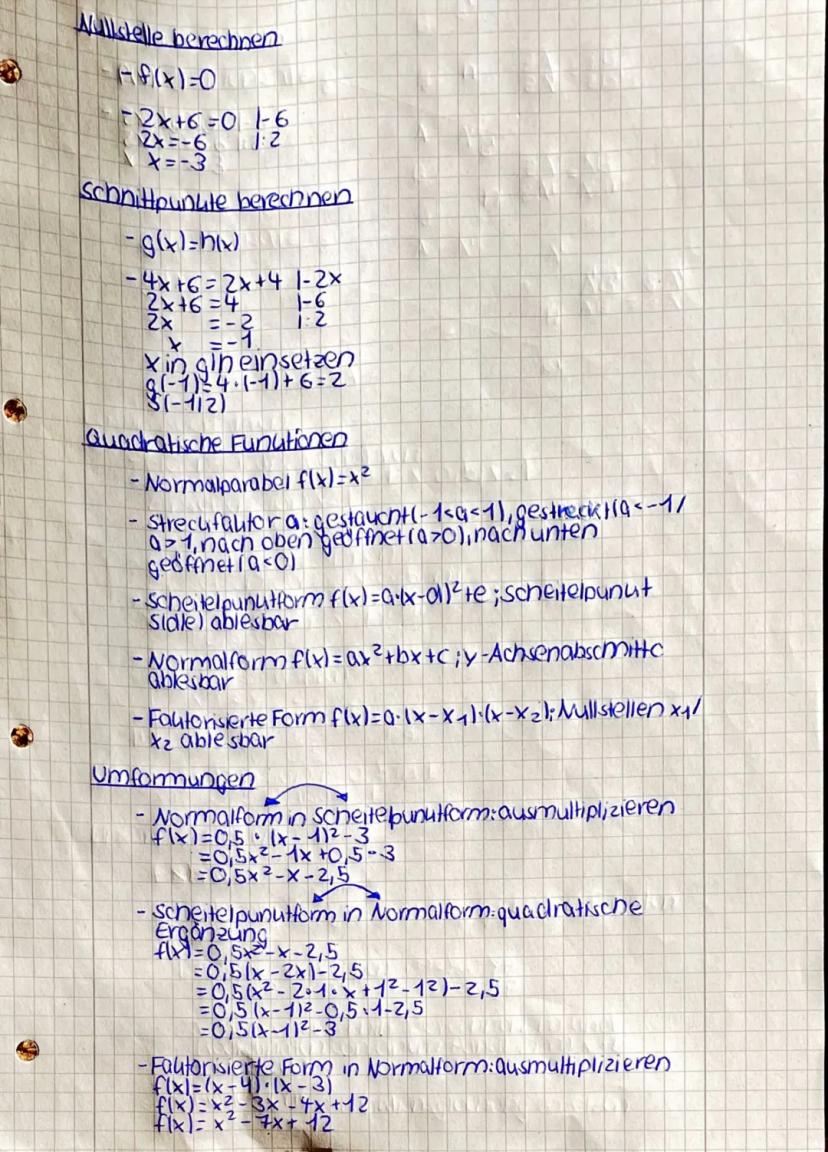 Nullstelle berechnen
- f(x)=0
- 2x+6=0 |-6
2x=-6 |:2
x=-3
Schnittpunkte berechnen
- g(x)=h(x)
- 4x+6=2x+4 |-2x
2x+6=4 |-6
2x =-2 |:2
x =-1
x in g/h einsetzen
g(-1)=4·(-1)+6=2
S(-1|2)
Quadratische Funktionen
- Normalparabel f(x)=x²
- Streckfaktor a: gestaucht(-1<a<1), gestreckt(a<-1/
a>1, nach oben geöffnet(a>0), nach unten
geöffnet(a<0)
- Scheitelpunktform f(x)=a·(x-d)²+e; Scheitelpunkt
S(d|e) ablesbar
- Normalform f(x)=ax²+bx+c; y-Achsenabschnitt c
ablesbar
- Faktorisierte Form f(x)=a·(x-x₁)·(x-x₂); Nullstellen x₁/
x₂ ablesbar
Umformungen
- Normalform in Scheitelpunktform: ausmultiplizieren
f(x)=0,5·(x-1)²-3
=0,5x²-1x+0,5-3
=0,5x²-x-2,5
- Scheitelpunktform in Normalform: quadratische
Ergänzung
f(x)=0,5x²-x-2,5
=0,5(x-2x)-2,5
=0,5(x²-2·1·x+1²-1²)-2,5
=0,5(x-1)²-0,5·1-2,5
=0,5(x-1)²-3
- Faktorisierte Form in Normalform: ausmultiplizieren
f(x)=(x-4)·(x-3)
f(x)=x²-3x-4x+12
f(x)=x²-7x+12